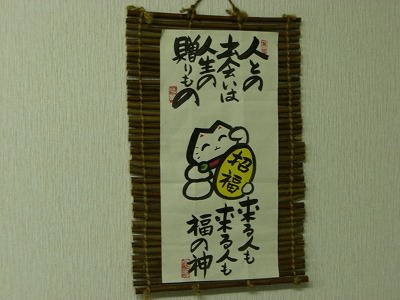 人との
出会いは
人生の
贈りもの
招福
来る人も
来る人も
福の神